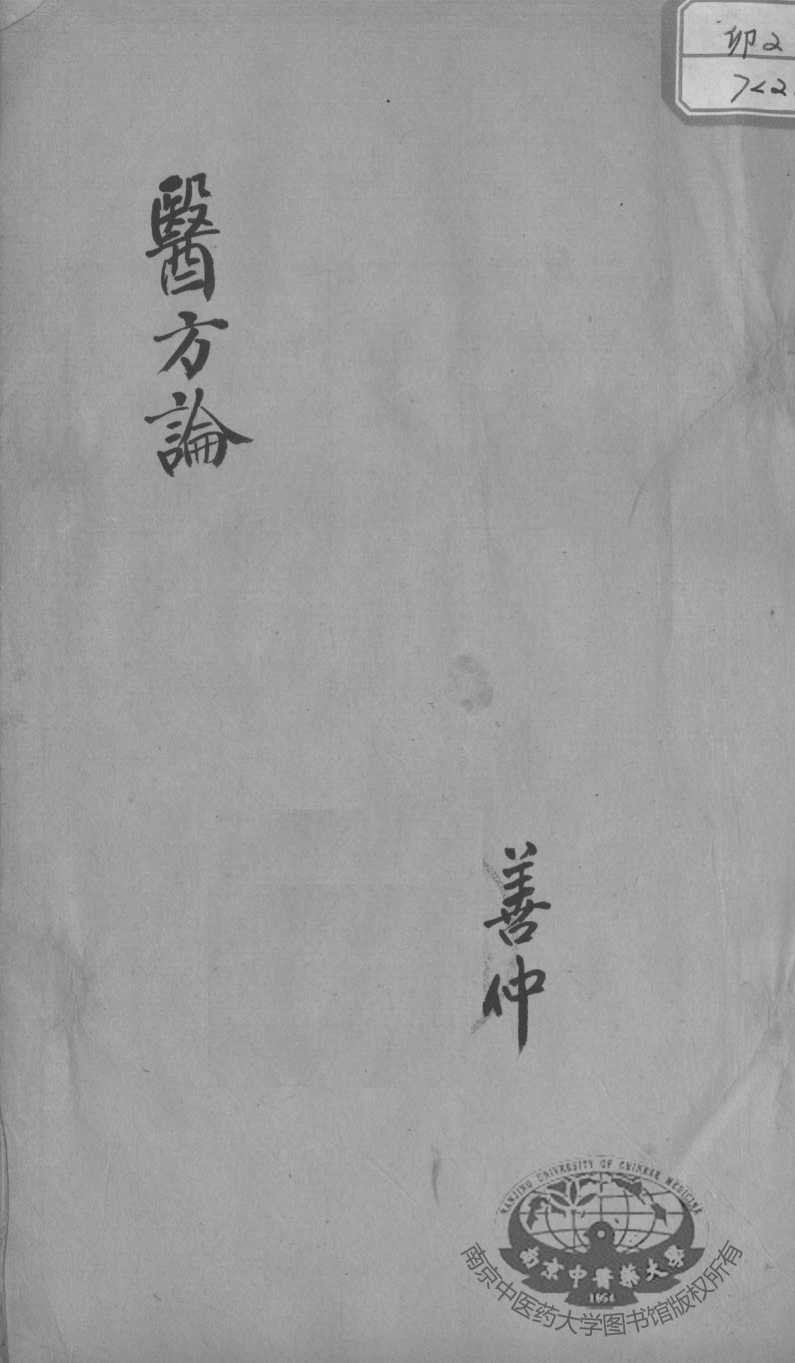 卯2
7<2
醫方論
善仲
NANJING UNIVERSITY OF CHINESE MEDICINE
南京中醫藥大學
1954
南京中医药大学图书馆版权所有